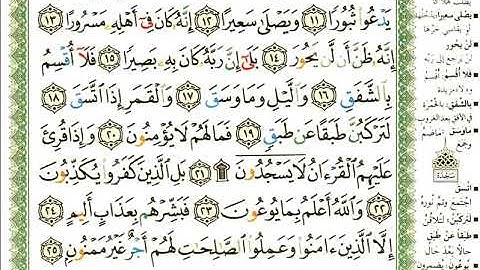 يَدۡعُواْ ثُبُورٗا ١١ وَيَصۡلَىٰ سَعِيرًا ١٢ إِنَّهُۥ كَانَ فِيٓ أَهۡلِهِۦ مَسۡرُورًا ١٣
إِنَّهُۥ ظَنَّ أَن لَّن يَحُورَ ١٤ بَلَىٰٓۚ إِنَّ رَبَّهُۥ كَانَ بِهِۦ بَصِيرٗا ١٥ فَلَآ أُقۡسِمُ
بِٱلشَّفَقِ ١٦ وَٱلَّيۡلِ وَمَا وَسَقَ ١٧ وَٱلۡقَمَرِ إِذَا ٱتَّسَقَ ١٨
لَتَرۡكَبُنَّ طَبَقًا عَن طَبَقٖ ١٩ فَمَا لَهُمۡ لَا يُؤۡمِنُونَ ٢٠ وَإِذَا قُرِئَ
عَلَيۡهِمُ ٱلۡقُرۡءَانُ لَا يَسۡجُدُونَۤ۩ ٢١ بَلِ ٱلَّذِينَ كَفَرُواْ يُكَذِّبُونَ
٢٢ وَٱللَّهُ أَعۡلَمُ بِمَا يُوعُونَ ٢٣ فَبَشِّرۡهُم بِعَذَابٍ أَلِيمٍ ٢٤
إِلَّا ٱلَّذِينَ ءَامَنُواْ وَعَمِلُواْ ٱلصَّٰلِحَٰتِ لَهُمۡ أَجۡرٌ غَيۡرُ مَمۡنُونِۭ ٢٥
يصلى سعيرا
لن يحور
فلا أقسم
بالشفق
ما وسق
سجدة
اتسق
لتركبن
طبقا عن طبق
يوعون